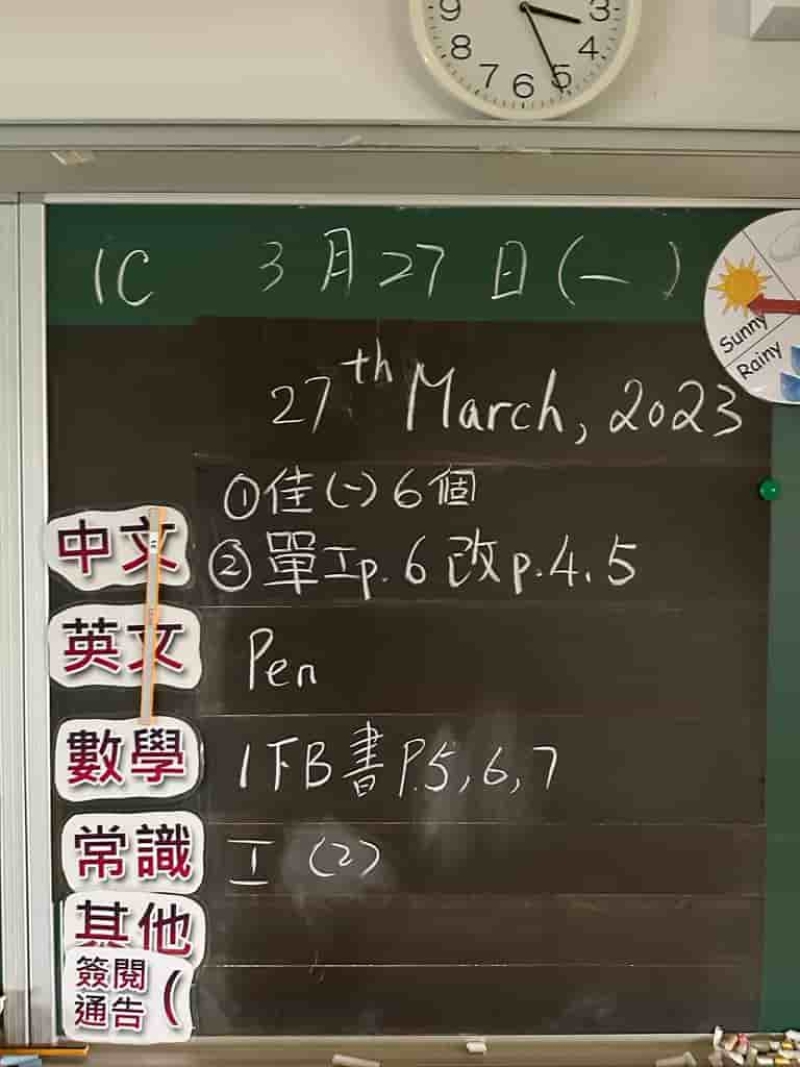 9 3
8 4
7 6 5
1C 3月27日(一)
Sunny
Rainy
27th March, 2023
①佳(一)6個
中文 ②單工p.6改p.4、5
英文 Pen
數學 1下B書P.5,6,7
常識 工(2)
其他
簽閱
通告 (